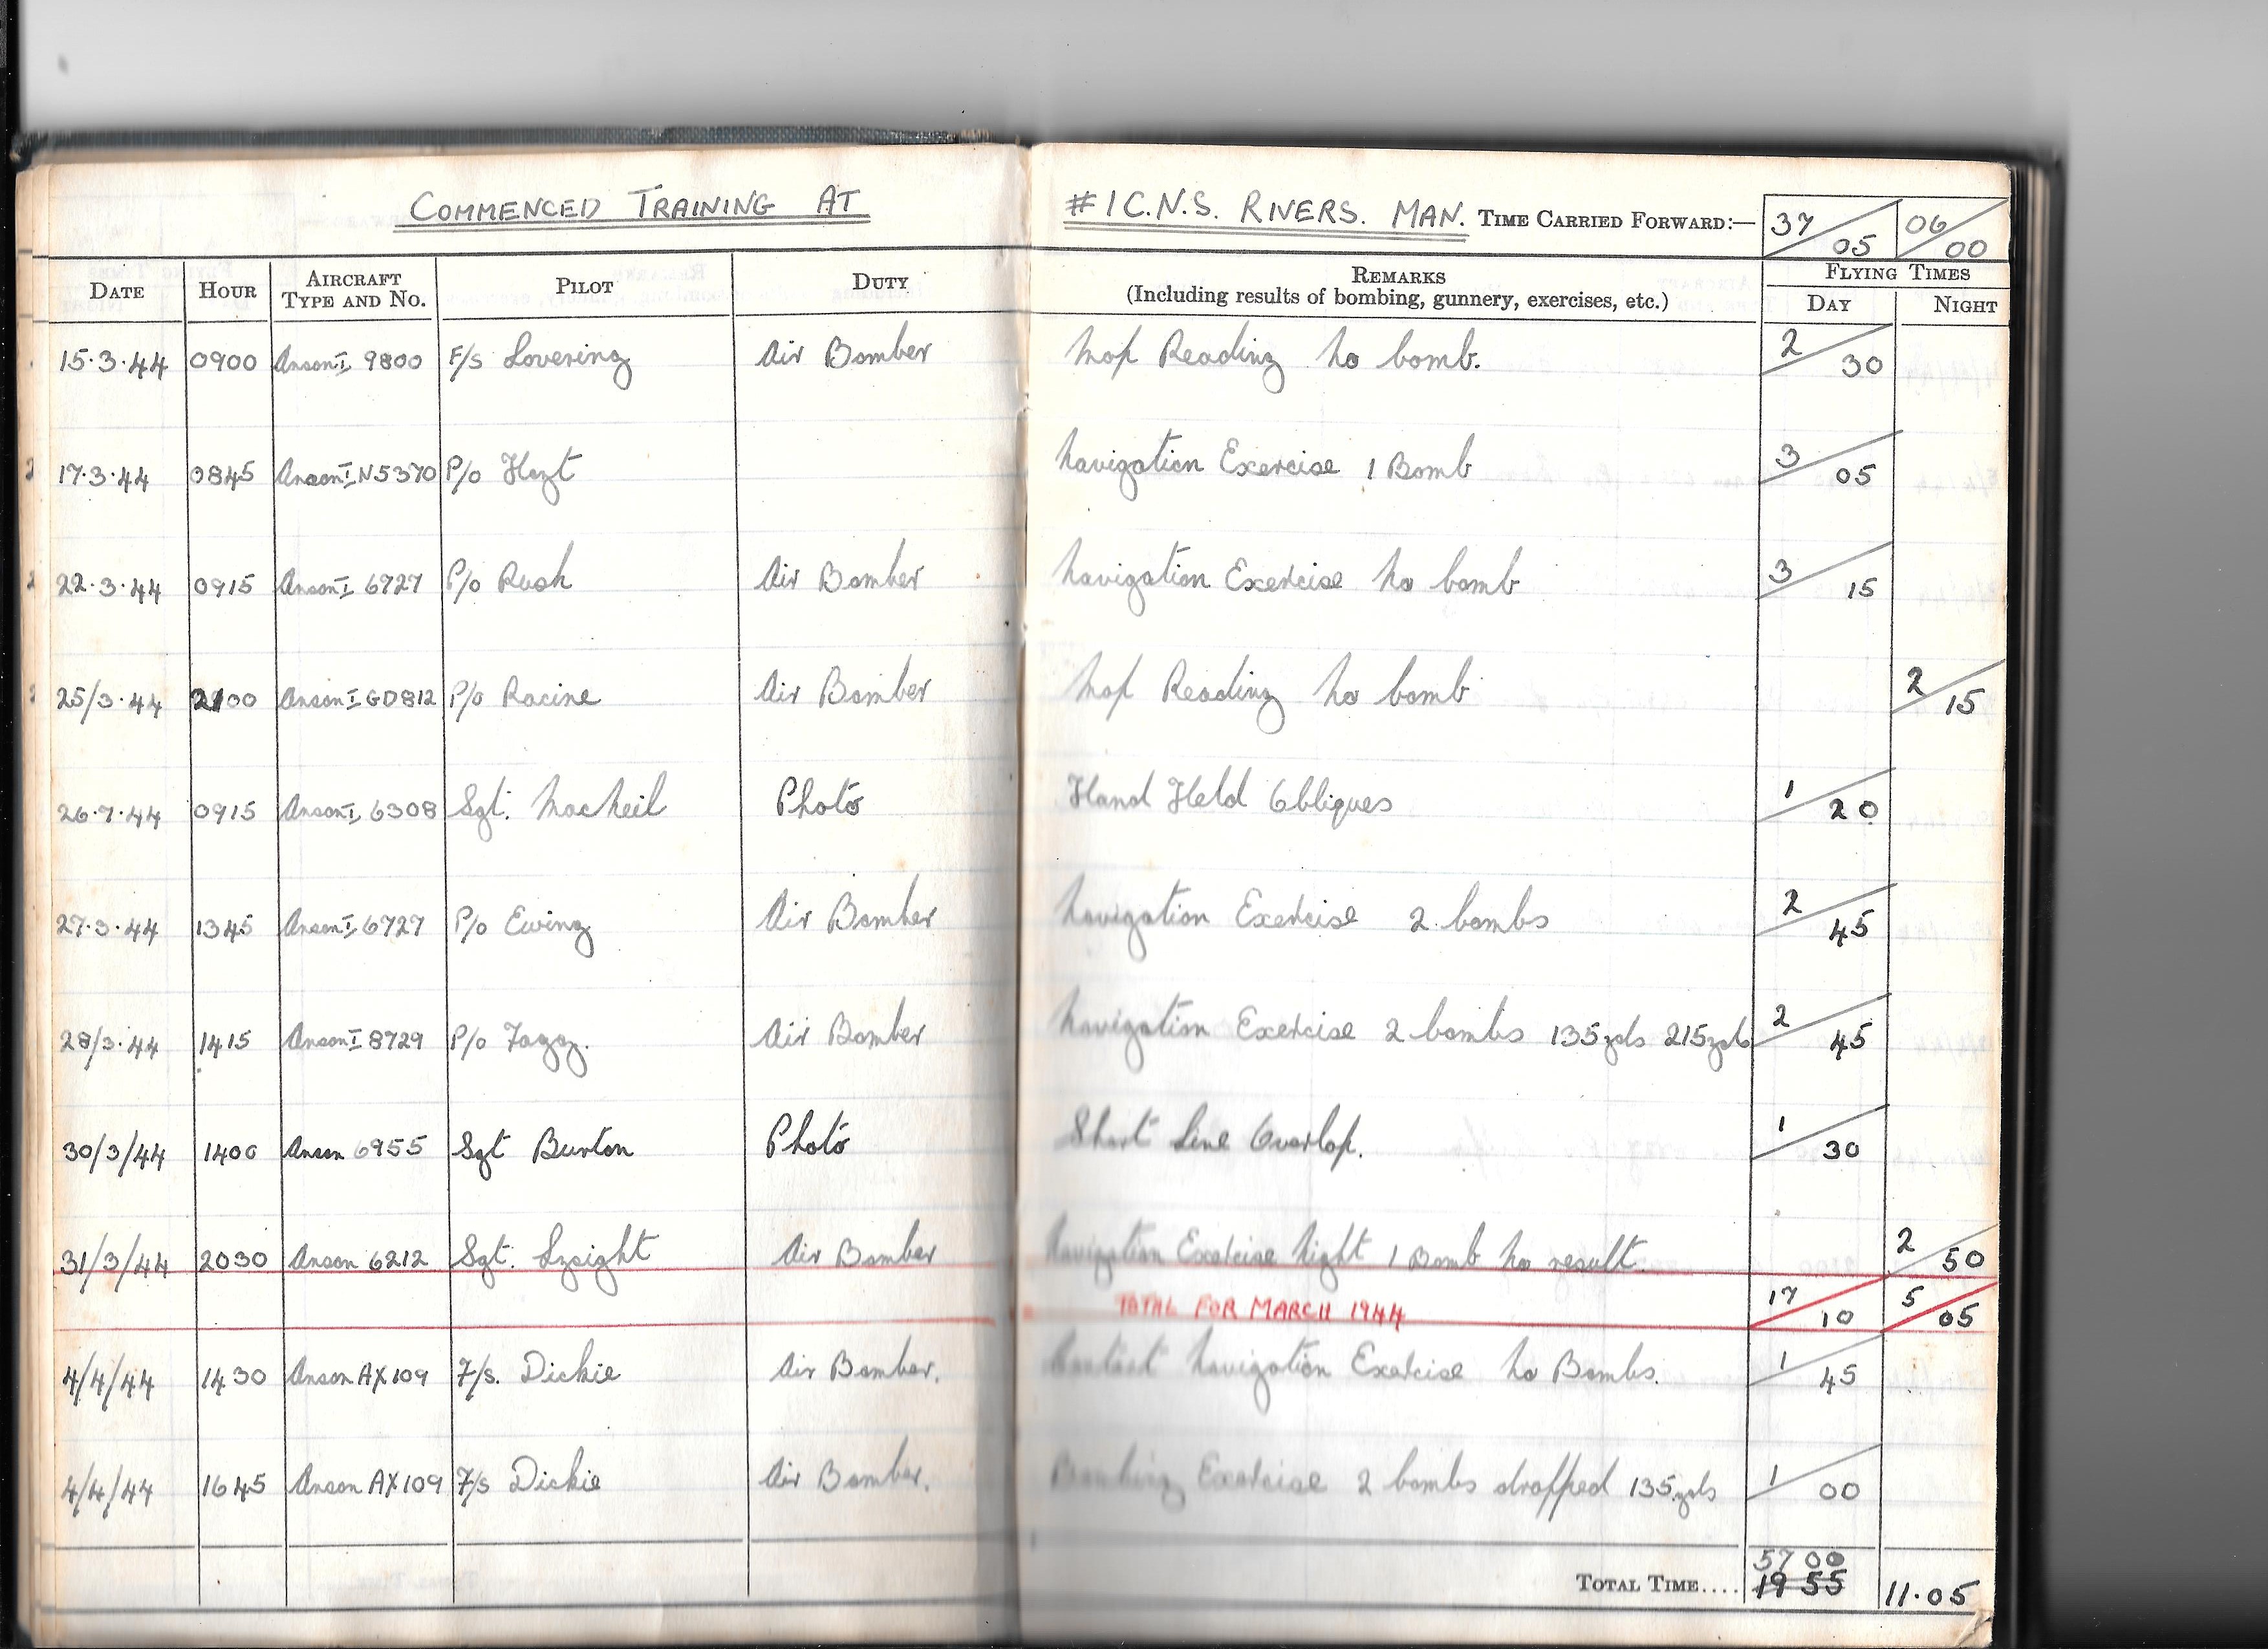 COMMENCED TRAINING AT #1 C.N.S. RIVERS. MAN. TIME CARRIED FORWARD:— 37/05 06/00
DATE HOUR AIRCRAFT TYPE AND No. PILOT DUTY REMARKS (Including results of bombing, gunnery, exercises, etc.) FLYING TIMES DAY NIGHT
15.3.44 0900 Anson I 9800 F/s Lovering Air Bomber Map Reading No bomb. 2/30
17.3.44 0845 Anson I N5370 P/o Navigation Exercise 1 Bomb 3/05
22.3.44 0915 Anson I 6727 P/o Rush Air Bomber Navigation Exercise No bomb 3/15
25/3.44 2100 Anson I GD812 P/o Racine Air Bomber Map Reading No bomb 2/15
26.7.44 0915 Anson I 6308 Sgt. MacNeil Photo Hand Held Obliques 1/20
27.3.44 1345 Anson I 6727 P/o Ewing Air Bomber Navigation Exercise 2 bombs 2/45
28/3.44 1415 Anson I 8729 P/o Air Bomber Navigation Exercise 2 bombs 135yds 215yds 2/45
30/3/44 1400 Anson 6955 Sgt Burton Photo Short Line Overlap. 1/30
31/3/44 2030 Anson 6212 Sgt. Lysight Air Bomber Navigation Exercise Night 1 Bomb No result. 2/50
TOTAL FOR MARCH 1944 17/10 5/05
4/4/44 1430 Anson AX109 F/s. Dickie Air Bomber. Contact Navigation Exercise No Bombs. 1/45
4/4/44 1645 Anson AX109 F/s Dickie Air Bomber. Bombing Exercise 2 bombs dropped 135yds 1/00
57 00
TOTAL TIME.... 19 55 11.05